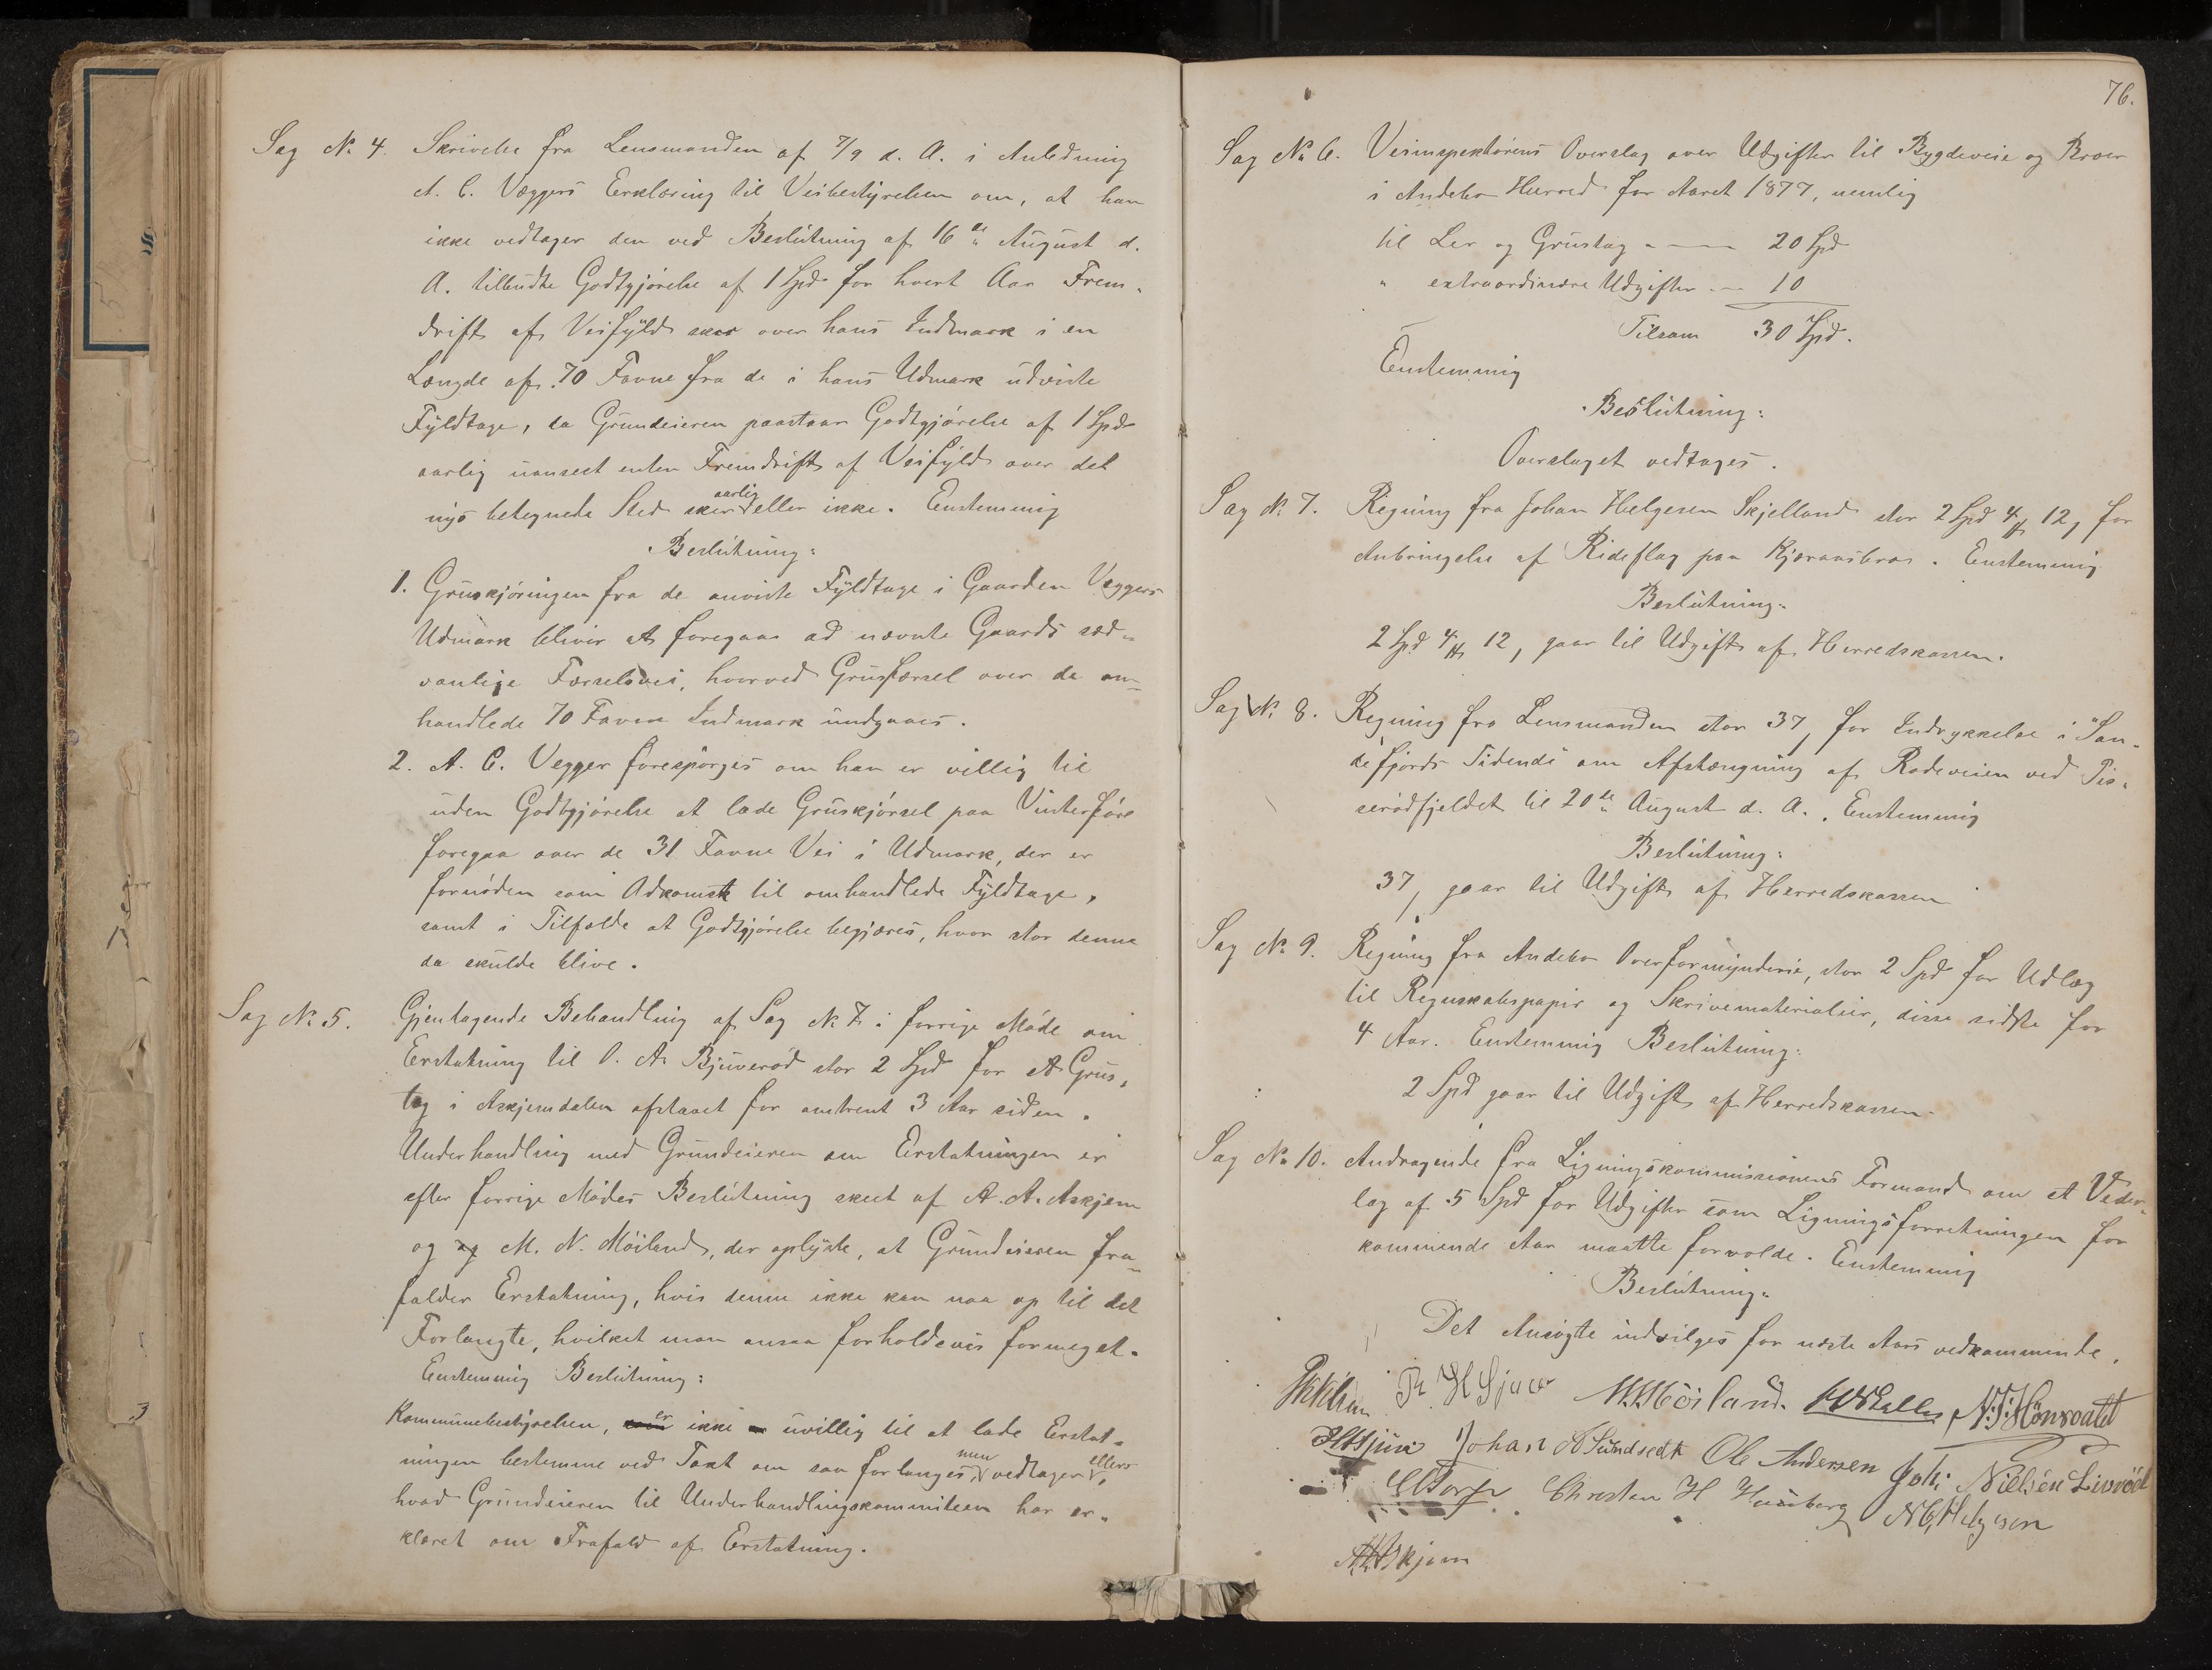 Sag No 4. Skrivelse fra Lensmanden af 7/9 d. A. i Anledning
A. C. Væggers Erklæring til Veibestyrelsen om, at han
ikke vedtager den ved Beslutning af 16de August d.
A. tilbudte Godtgjørelse af 1 Spd for hvert Aar Frem-
drift af Veifyld sker over hans Indmark i en
Længde af 70 Favne fra de i hans Udmark udviste
Fyldtage, da Grundeieren paastaar Godtgjørelse af 1 Spd
aarlig uanseet enten Fremdrift af Veifyld over det
nys betegnede Sted sker aarlig eller ikke. Enstemmig
Beslutning:
1. Gruskjøringen fra de anviste Fyldtage i Gaarden Væggers
Udmark bliver at foregaa ad nævnte Gaards sæd-
vanlige Færselsvei, hvorved Grusfærsel over de om-
handlede 70 Favne Indmark undgaaes.
2. A. C. Vegger forespørges om han er villig til
uden Godtgjørelse at lade Gruskjørsel paa Vinterføre
foregaa over de 31 Favne Vei i Udmark, der er
fornøden som Adkomst til omhandlede Fyldtage,
samt i Tilfælde at Godtgjørelse begjæres, hvor stor denne
da skulde blive.
Sag No 5. Gjentagende Behandling af Sag No 7 i forrige Møde om
Erstatning til O. A. Bjuerød stor 2 Spd for et Grus-
tag i Askjemdalen afstaaet for omtrent 3 Aar siden.
Underhandling med Grundeieren om Erstatningen er
efter forrige Mødes Beslutning skeet af A. A. Askjem
og og M. N. Møiland, der oplyste, at Grundeieren fra-
falder Erstatning, hvis denne ikke kan naa op til det
Forlangte, hvilket man ansaa forholdsvis formeget.
Enstemmig Beslutning:
Kommunebestyrelsen, er ikke uvillig til at lade Erstat-
ningen bestemme ved Taxt om saa forlanges, men vedtager ellers
hvad Grundeieren til Underhandlingskommiteen har er-
klæret om Frafald af Erstatning.
76.
Sag No 6. Veiinspektørens Overslag over Udgifter til Bygdeveie og Broer
i Andebo Herred for Aaret 1877, nemlig
til Ler og Grustag - — 20 Spd
" extraordinære Udgifter - — 10
Tilsam 30 Spd.
Enstemmig
Beslutning:
Overslaget vedtages.
Sag No 7. Regning fra Johan Helgesen Skjelland stor 2 Spd 4 # 12, for
Anbringelse af Rideflag paa Kjæraasbro. Enstemmig
Beslutning:
2 Spd 4 # 12, gaar til Udgift af Herredskassen.
Sag No 8. Regning fra Lensmanden stor 37, for Indrykkelse i "San-
defjords Tidende" om Afstængning af Rodeveien ved Tis-
serødfjeldet til 20de August d. A. Enstemmig
Beslutning:
37, gaar til Udgift af Herredskassen
Sag No 9. Regning fra Andebo Overformynderie, stor 2 Spd for Udlæg
til Regnskabspapir og Skrivematerialier, disse sidste for
4 Aar. Enstemmig Beslutning:
2 Spd gaar til Udgift af Herredskassen.
Sag No 10. Andragende fra Ligningskommissionens Formand om et Veder-
lag af 5 Spd for Udgifter som Ligningsforretningen for
kommende Aar maatte forvolde. Enstemmig
Beslutning:
Det Ansøgte indvilges for næste Aars vedkommende.
M. Möiland.
Johan A Sundsedt Ole Andersen Joh: Nielsen Liverød
Christen H
A. A. Askjem